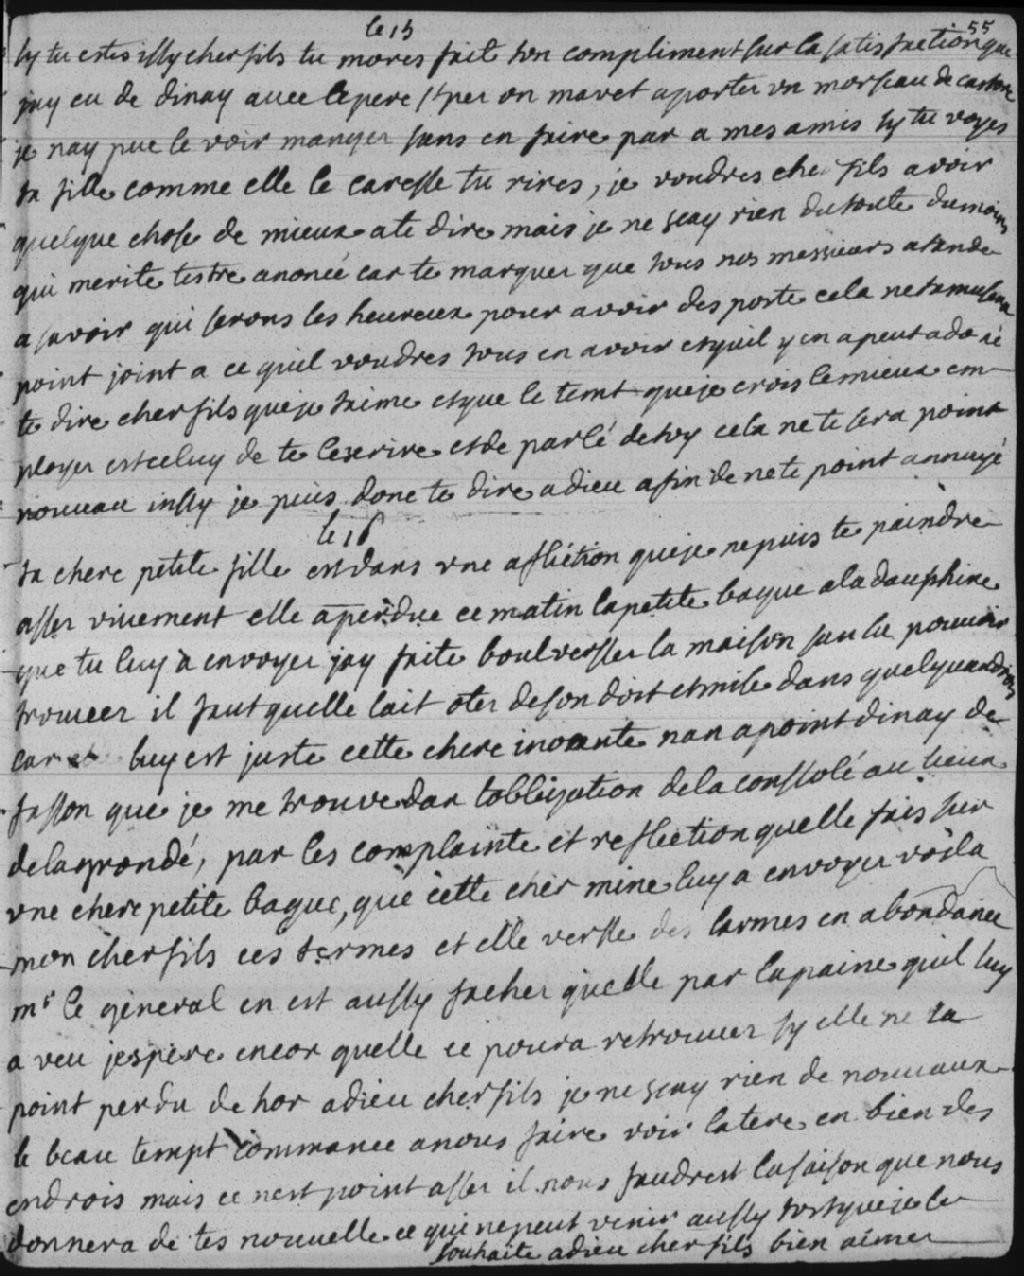 55
le 15
sy tu estes issy cher fils tu mores fait ton compliment sur la satisfaction que
jay eu de dinay avec le pere sper on mavet aporter un morseau de castore
je nay pue le voir manger sans en faire par a mes amis sy tu voyes
ta fille comme elle le caresse tu rires, je voudres cher fils avoir
quelque chose de mieux a te dire mais je ne scay rien du toute du moins
qui merite testre anoncé car te marquer que tous nos messieurs atende
a savoir qui serons les heureux pour avoir des poste cela ne tamusera
point joint a ce quil voudres tous en avoir et quil y en a peut a do né
te dire cher fils que je taime et que le temt que je crois le mieux em
ployer est celuy de te lescrire et de parlé de toy cela ne te sera point
nouveau inssy je puis donc te dire adieu afin de ne te point annuyé
le 16
ta chere petite fille est dans une afliction que je ne puis te paindre
asser vivement elle a perdue ce matin la petite bague a la dauphine
que tu luy a envoyer jay faite boulversser la maison san la pouvoir
trouver il faut quelle lait oter de son doit et mise dans quelque androis
car luy est juste cette chere inosante nan a point dinay de
fasson que je me trouve dan lobligation de la consolé au lieux
de la grondé, par les complainte et reflection quelle fais sur
une chere petite bague, que cette cher mine luy a envoyer voila
mon cher fils ces termes et elle versse des larmes en abondance
mr le general en est aussy facher quelle par la paine quil luy
a veu jespere encor quelle ce poura retrouver sy elle ne la
point perdu de hor adieu cher fils je ne scay rien de nouvaux
le beau tempt commance a nous faire voir la tere en bien des
endrois mais ce nest point asser il nous faudrest la saison que nous
donnera de tes nouvelle ce qui ne peut venir aussy tost que je le
souhaite adieu cher fils bien aimer